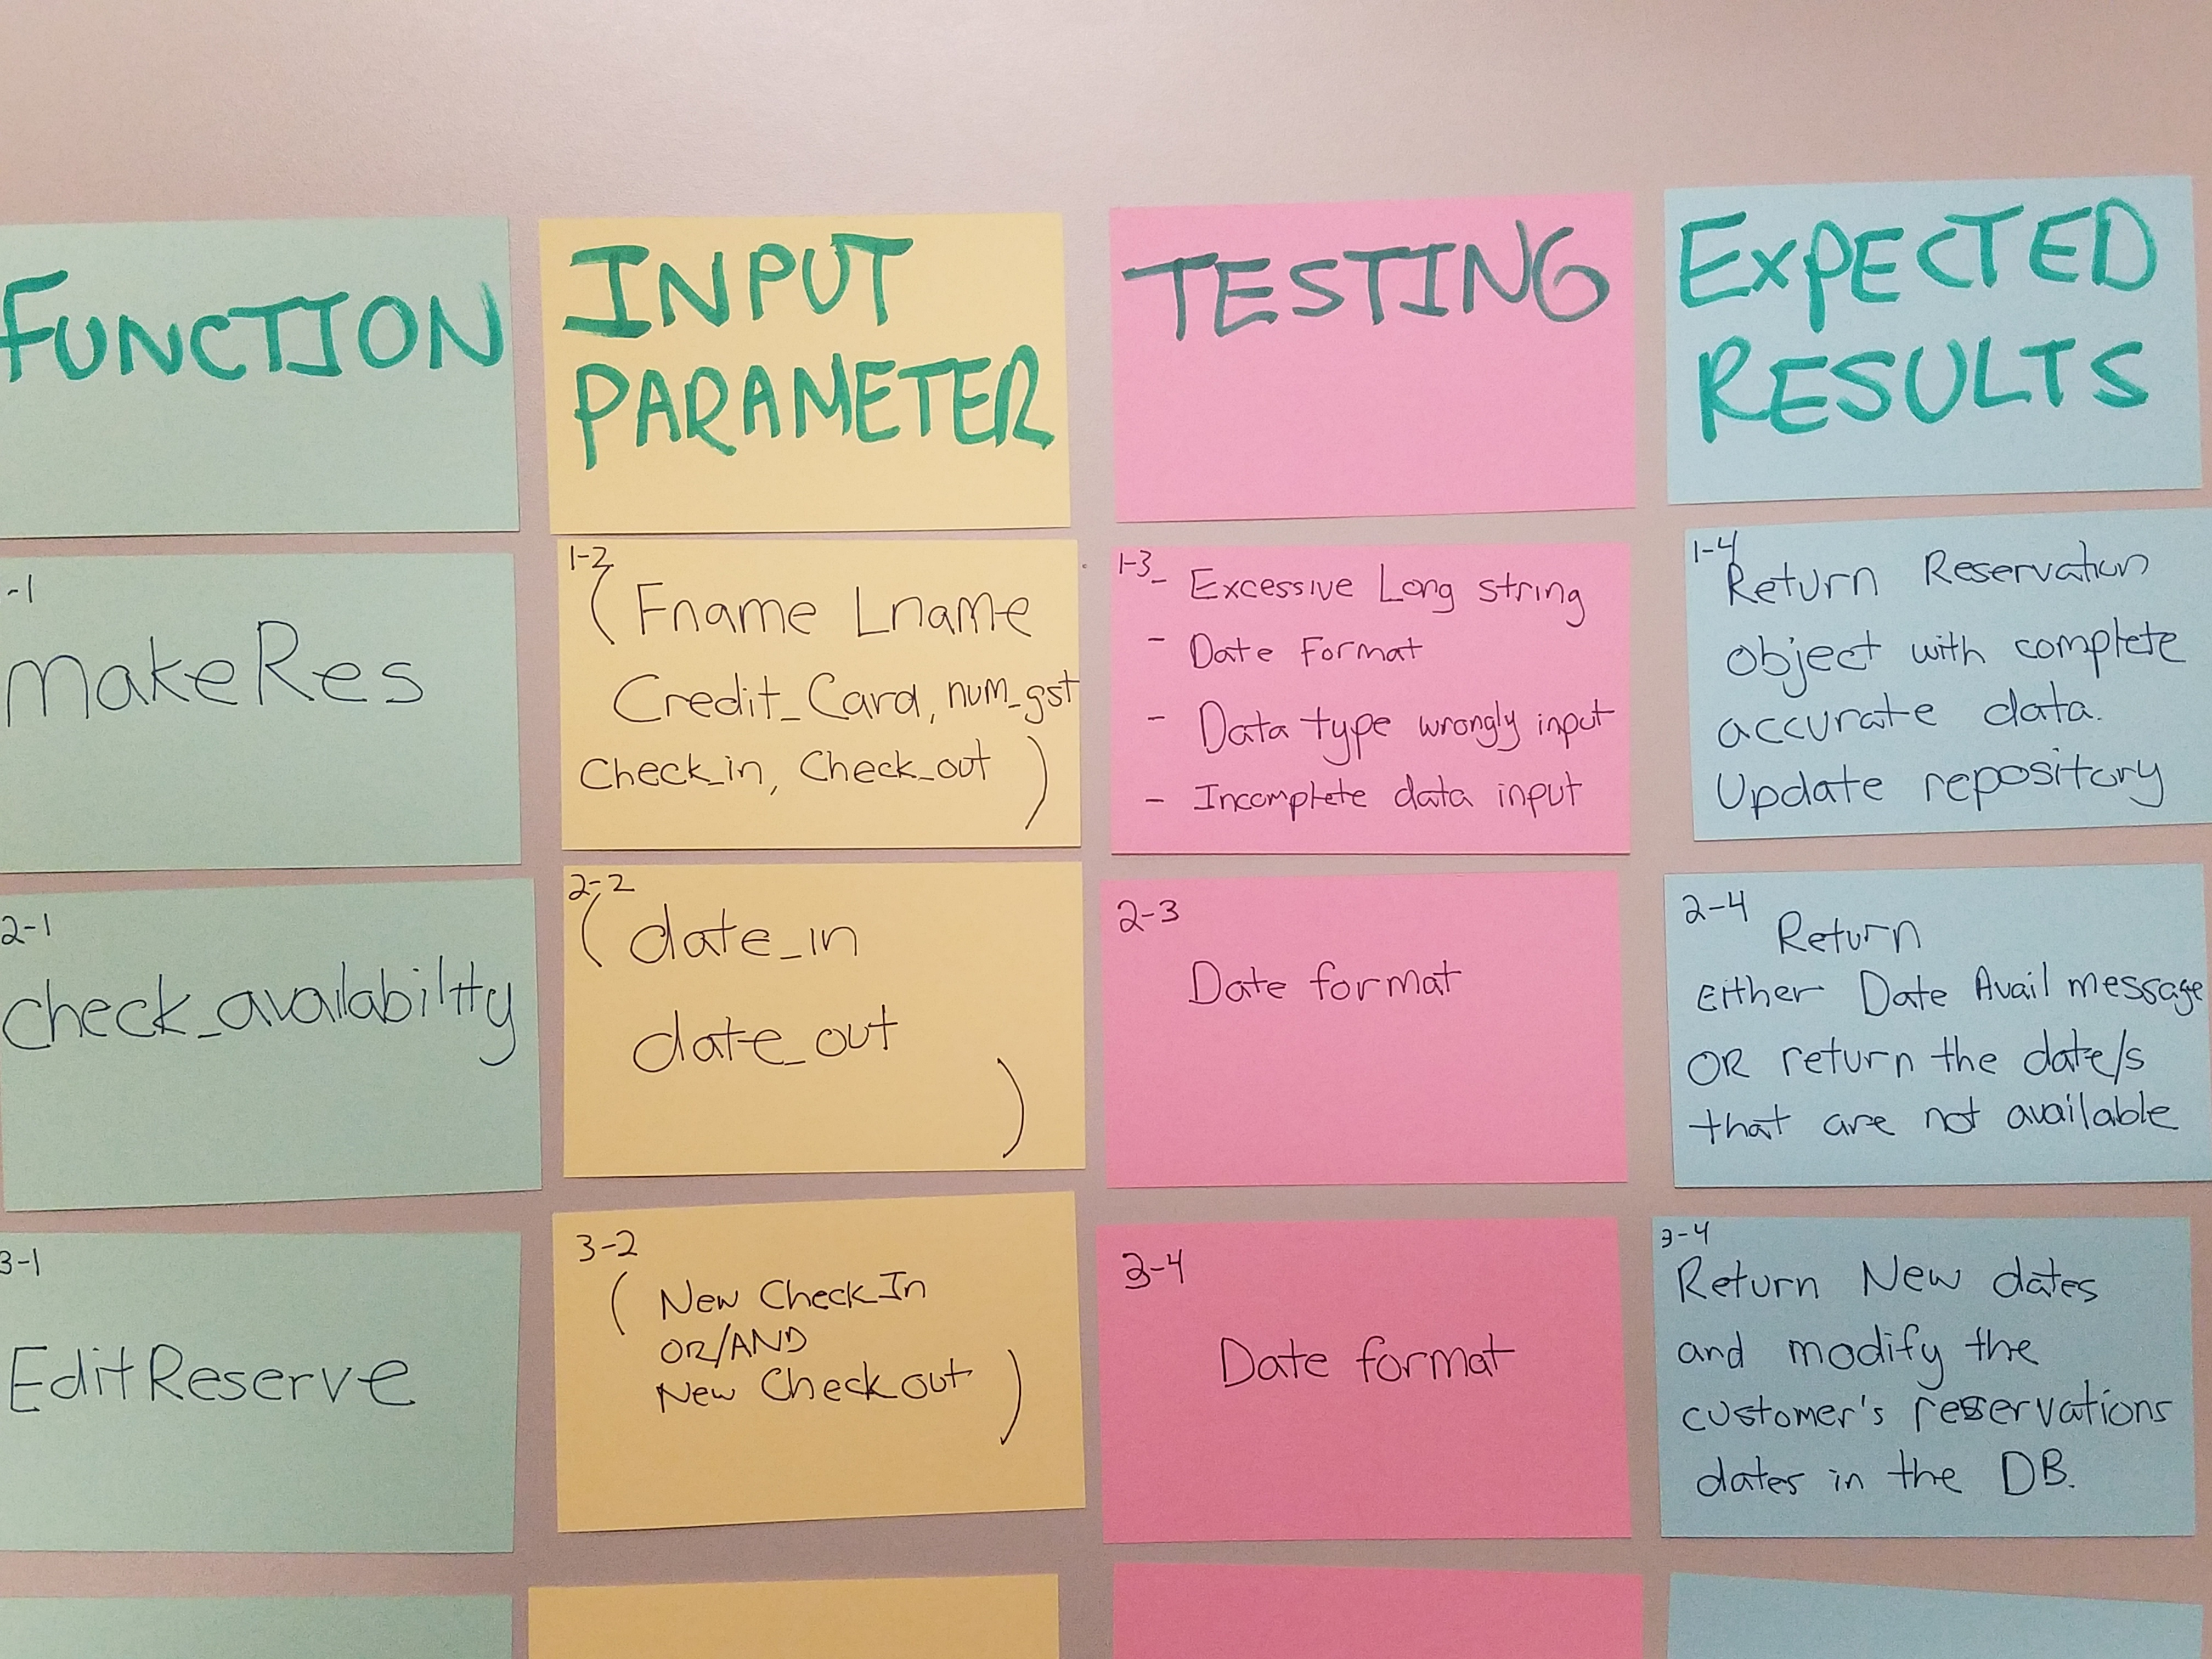 FUNCTION
INPUT
PARAMETER
TESTING
EXPECTED
RESULTS
-1
makeRes
1-2
( Fname Lname
Credit_Card, num_gst
Check_in, Check_out )
1-3
- Excessive Long string
- Date Format
- Data type wrongly input
- Incomplete data input
1-4
Return Reservation
object with complete
accurate data.
Update repository
2-1
check_availability
2-2
( date_in
date_out
)
2-3
Date format
2-4
Return
Either Date Avail message
OR return the date/s
that are not available
3-1
EditReserve
3-2
( New Check_In
OR/AND
New Checkout )
3-4
Date format
3-4
Return New dates
and modify the
customer's reservations
dates in the DB.